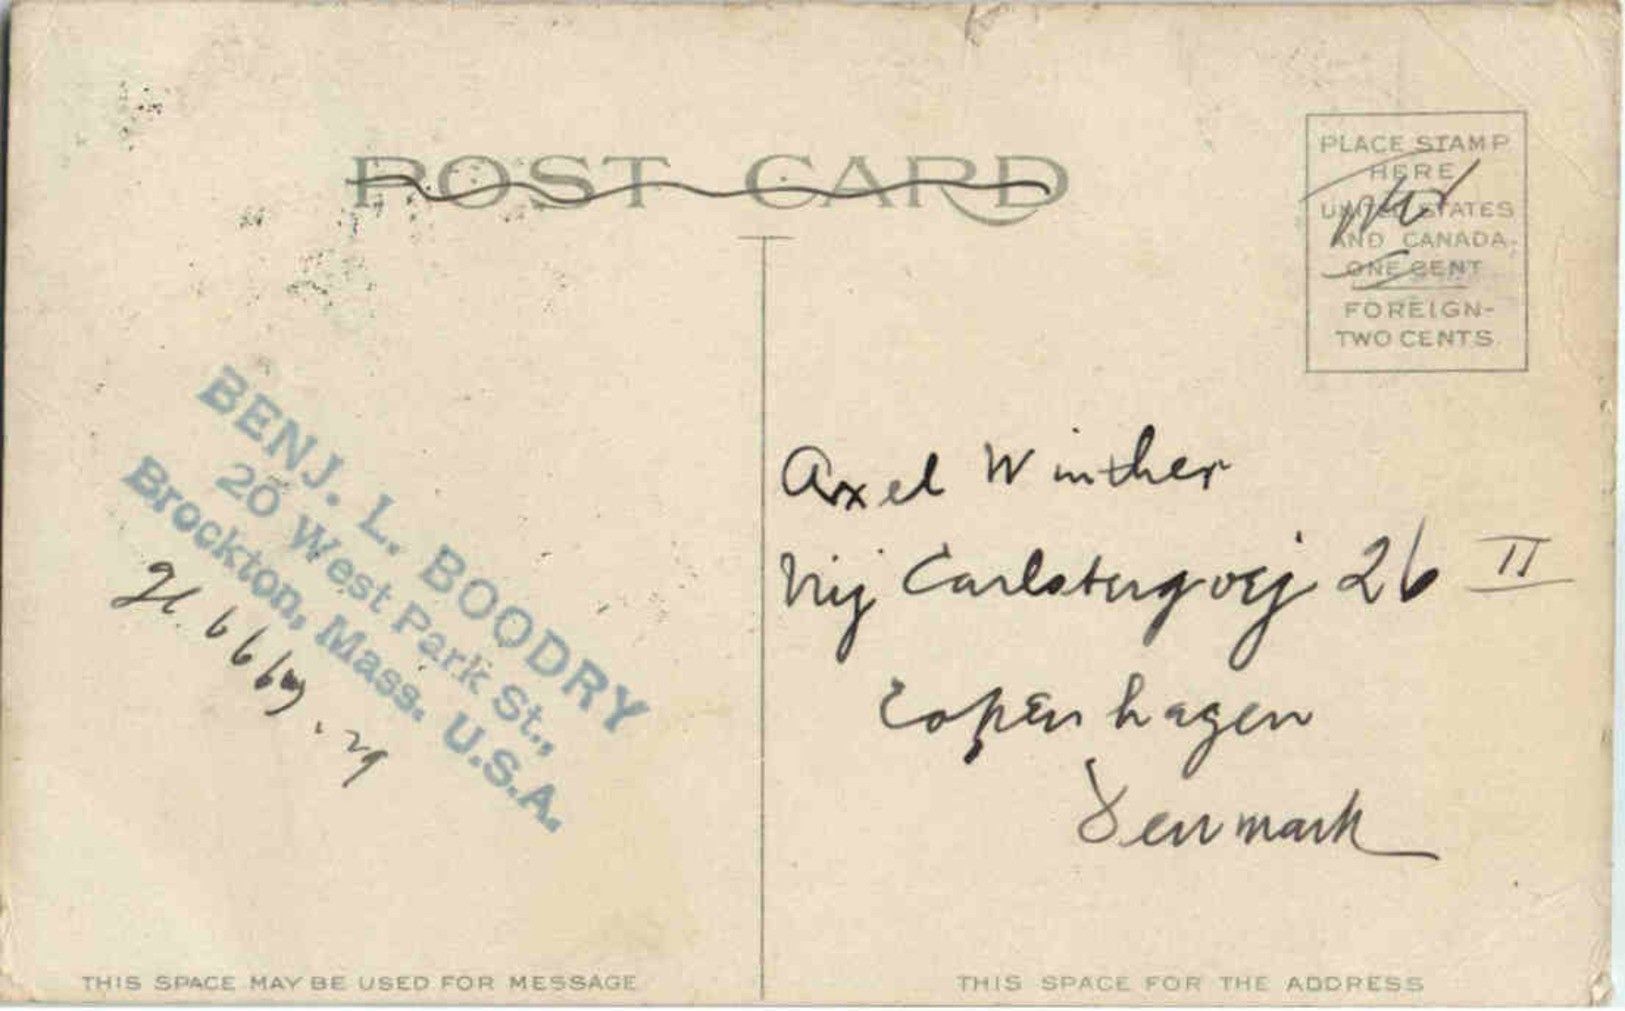 POST CARD
PLACE STAMP
HERE
UNITED STATES
AND CANADA,
ONE CENT
FOREIGN-
TWO CENTS
BENJ. L. BOODRY
20 West Park St.,
Brockton, Mass. U.S.A.
Axel Winther
Nij Carlsbergvej 26 II
Copenhagen
Denmark
THIS SPACE MAY BE USED FOR MESSAGE
THIS SPACE FOR THE ADDRESS